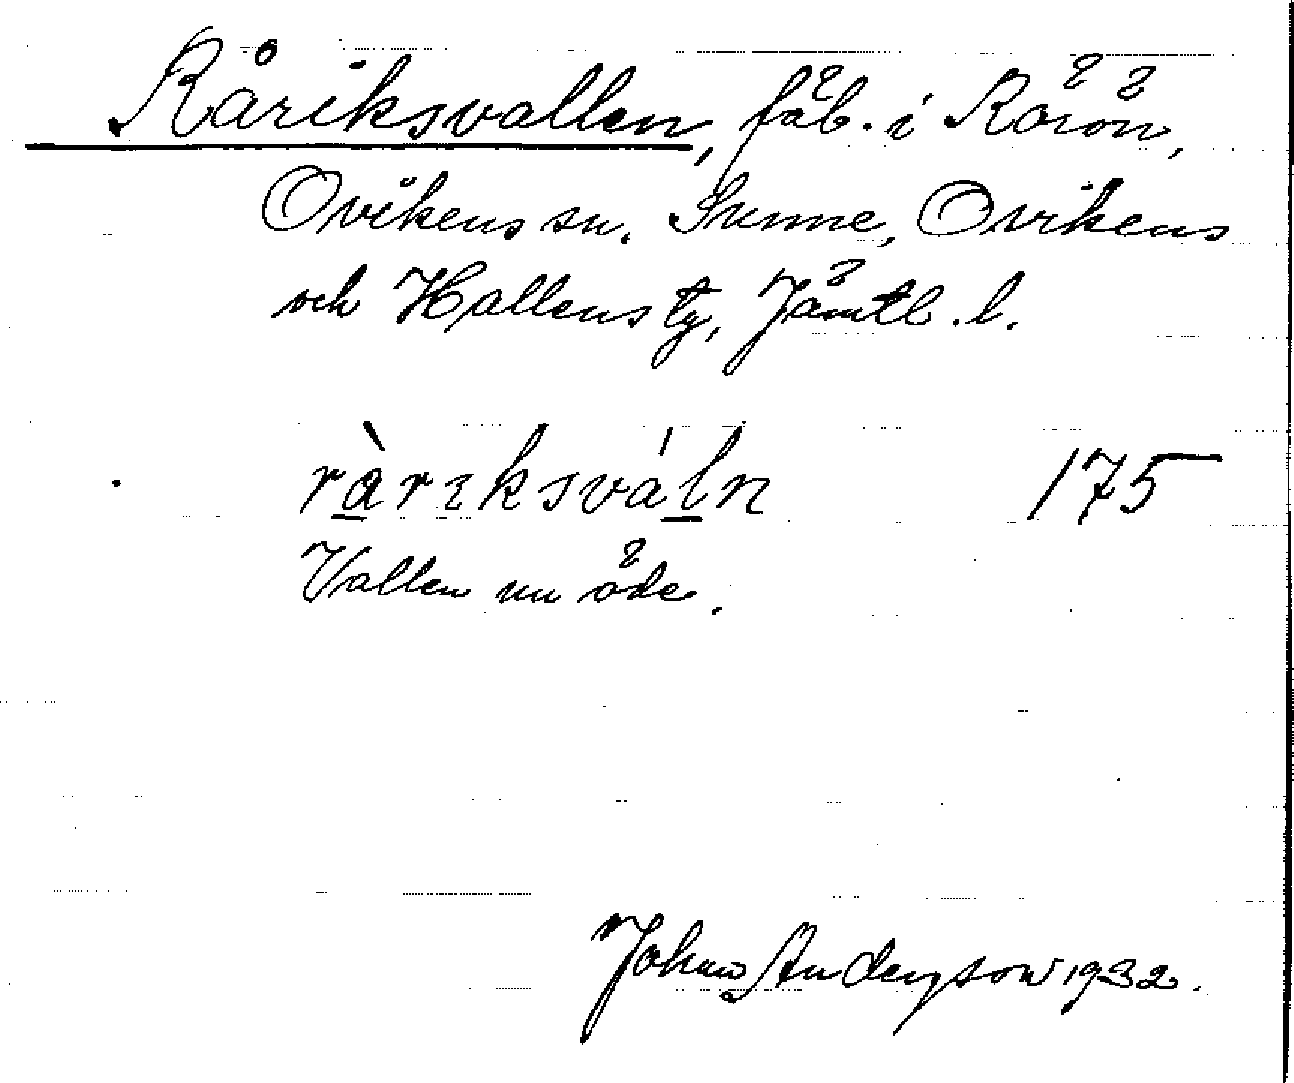 Råriksvallen, fäb. i Rörön,
Ovikens sn. Sunne, Ovikens
och Hallens tg, Jämtl. l.
ràrıksváln 175
Vallen nu öde.
Johan Anderson 1932.